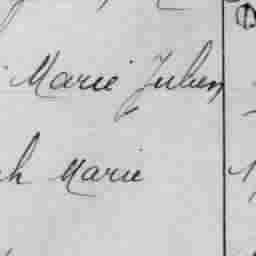 Marie Julien
h Marie